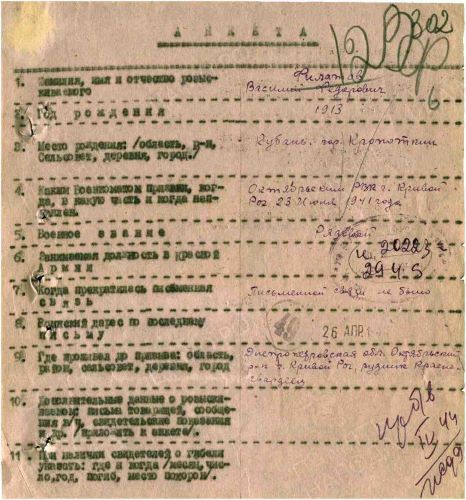 А Н К Е Т А
1. Фамилия, имя и отчество разыс-
киваемого
Филатов
Василий Федорович
2. Год рождения
1913
3. Место рождения: /область, р-н,
Сельсовет, деревня, город./
Кубань. гор. Кропоткин
4. Каким Военкоматом призван, ког-
да, в какую часть и когда нап-
равлен.
Октябрьским РВК г. Кривой
Рог 23 Июня 1941 года
5. Военное звание
Рядовой
6. Занимаемая должность в Красной
Армии
и. 20223
29 4. 5
7. Когда прекратилась письменная
связь
Письменной связи не было
8. Воинский адрес по последнему
письму
49
26 АПР
9. Где проживал до призыва: область,
район, сельсовет, деревня, город
Днепропетровская обл. Октябрьский
р-н г. Кривой Рог, рудник Красно-
гвардеец
10. Дополнительные данные о разыски-
ваемом: письма товарищей, сообще-
ния в/ч, свидетельские показания
и др. /приложить к анкете/.
11. При наличии свидетелей о гибели
указать: где и когда /месяц, чис-
ло, год, погиб, место похорон/.